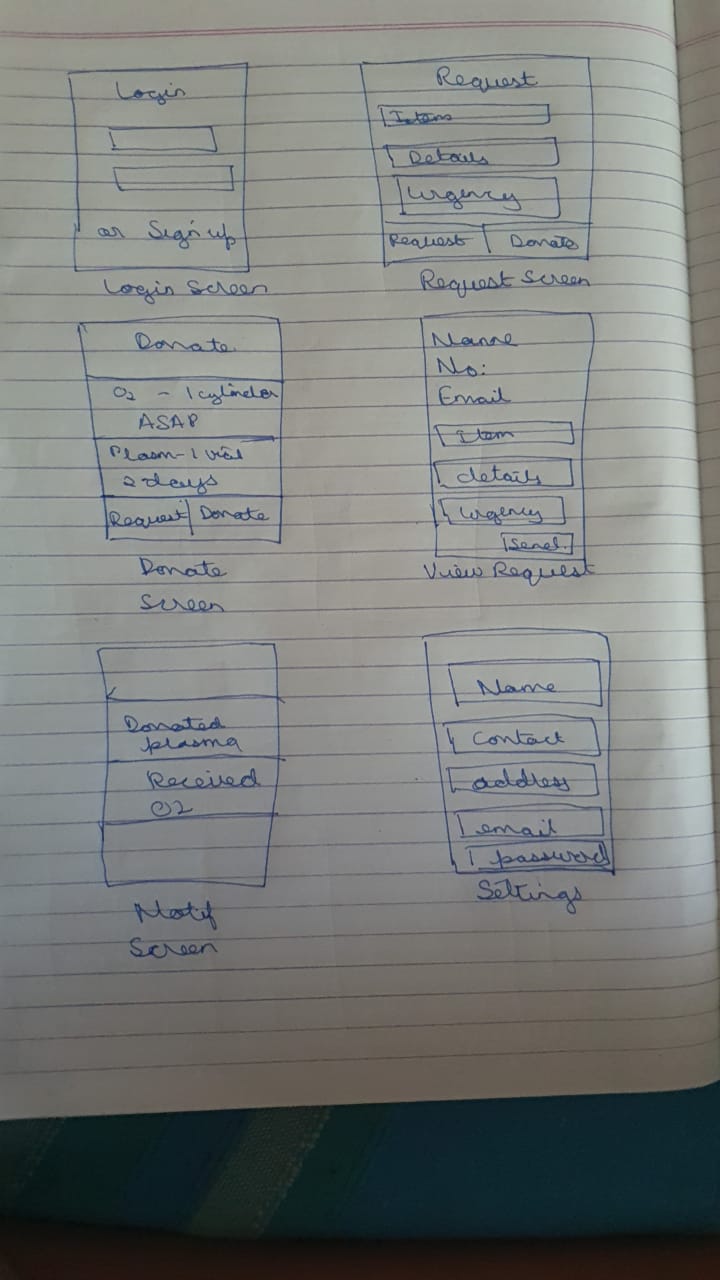 Login
or Sign up
Login Screen
Request
Items
Details
Urgency
Request Donate
Request Screen
Donate
O2 - 1 cylinder
ASAP
Plasm-1 vial
2 days
Request Donate
Donate
Screen
Name
No:
Email
Item
details
Urgency
Send
View Request
Donated
plasma
Received
O2
Notif
Screen
Name
Contact
address
email
password
Settings